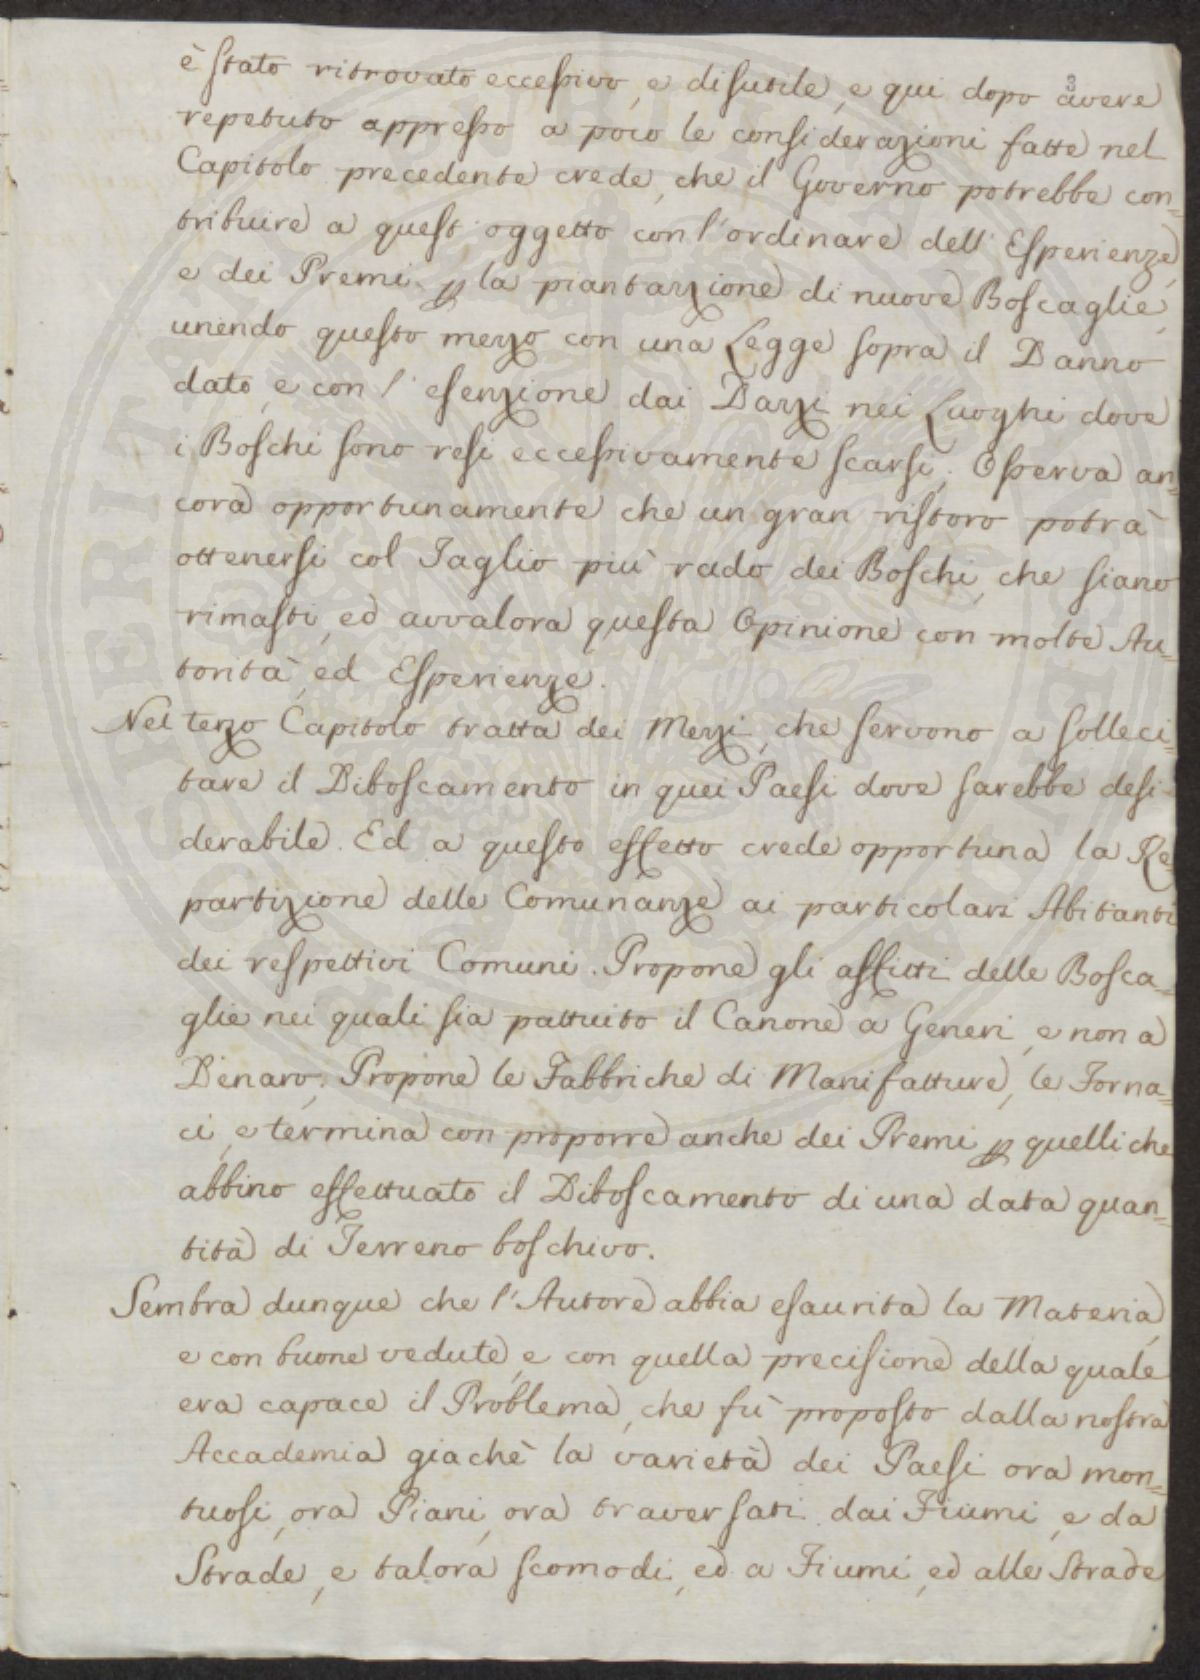 3
è stato ritrovato eccessivo, e disutile, e qui dopo avere
repetuto appresso a poco le considerazioni fatte nel
Capitolo precedente crede, che il Governo potrebbe con=
tribuire a quest' oggetto con l'ordinare dell' Esperienze,
e dei Premi p la piantazzione di nuove Boscaglie,
unendo questo mezzo con una Legge sopra il Danno
dato, e con l' esenzione dai Dazzi nei Luoghi dove
i Boschi sono resi eccessivamente scarsi. Osserva an=
cora opportunamente che un gran ristoro potrà
ottenersi col Taglio più rado dei Boschi, che siano
rimasti, ed avvalora questa Opinione con molte Au=
torità, ed Esperienze.
Nel terzo Capitolo tratta dei Mezzi, che servono a solleci=
tare il Diboscamento in quei Paesi dove sarebbe desi=
derabile. Ed a questo effetto crede opportuna la Re=
partizione delle Comunanze ai particolari Abitanti
dei respettivi Comuni. Propone gli affitti delle Bosca=
glie nei quali sia pattuito il Canone a Generi, e non a
Denaro; Propone le Fabbriche di Manifatture, le Forna=
ci, e termina con proporre anche dei Premi p quelli che
abbino effettuato il Diboscamento di una data quan=
tità di Terreno boschivo.
Sembra dunque che l'Autore abbia esaurita la Materia,
e con buone vedute, e con quella precisione della quale
era capace il Problema, che fù proposto dalla nostra
Accademia giachè la varietà dei Paesi ora mon=
tuosi, ora Piani, ora traversati dai Fiumi, e da
Strade, e talora scomodi, ed a Fiumi, ed alle Strade